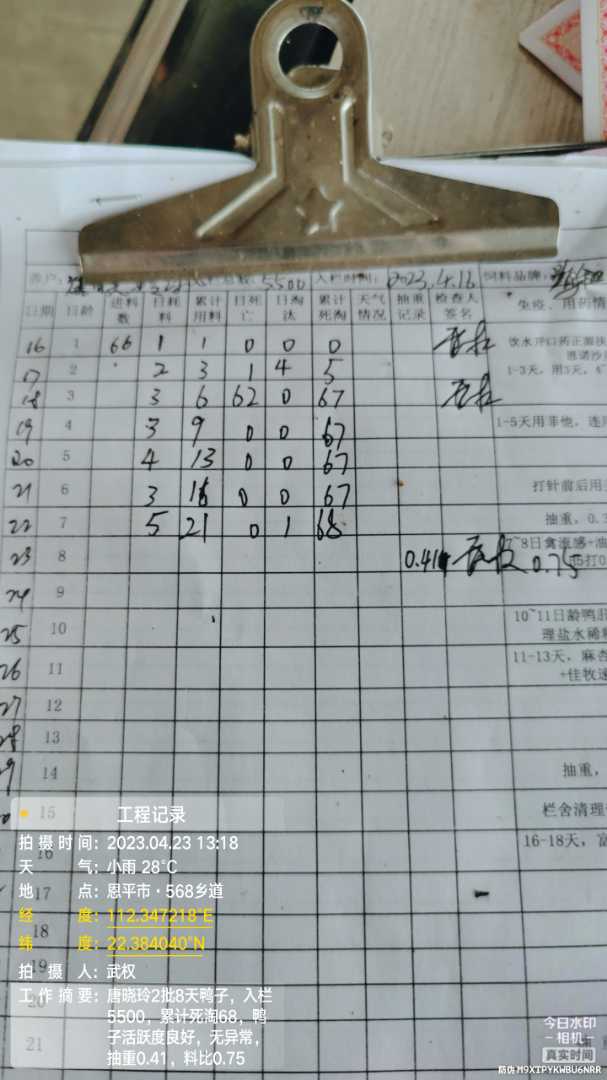 入栏时间: 2023.4.16 饲料品牌:
日期 日龄 进料数 日耗料 累计用料 日死亡 日淘汰 累计死淘 天气情况 抽重记录 检查人签名 免疫、用药情
16 1 66 1 1 0 0 0 饮水开口药正面扶
17 2 2 3 1 4 5 1-3天,用3天,
18 3 3 6 62 0 67
19 4 3 9 0 0 67 1-5天用菲他,连用
20 5 4 13 0 0 67
21 6 3 16 0 0 67 打针前后用
22 7 5 21 0 1 68 抽重,
23 8 0.41 0.75 7~8日禽流感+油
24 9
25 10 10~11日龄鸭肝
理盐水稀
26 11 11-13天,麻杏
+佳牧速
27 12
28 13
29 14 抽重,
15 栏舍清理
16 16-18天,
17
18
19
20
21
工程记录
拍摄时间:2023.04.23 13:18
天气:小雨 28°C
地点:恩平市·568乡道
经度:112.347218°E
纬度:22.384040°N
拍摄人:武权
工作摘要:唐晓玲2批8天鸭子,入栏
5500,累计死淘68,鸭
子活跃度良好,无异常,
抽重0.41,料比0.75
今日水印
相机
真实时间
防伪 M9XTPYKWBU6NRR